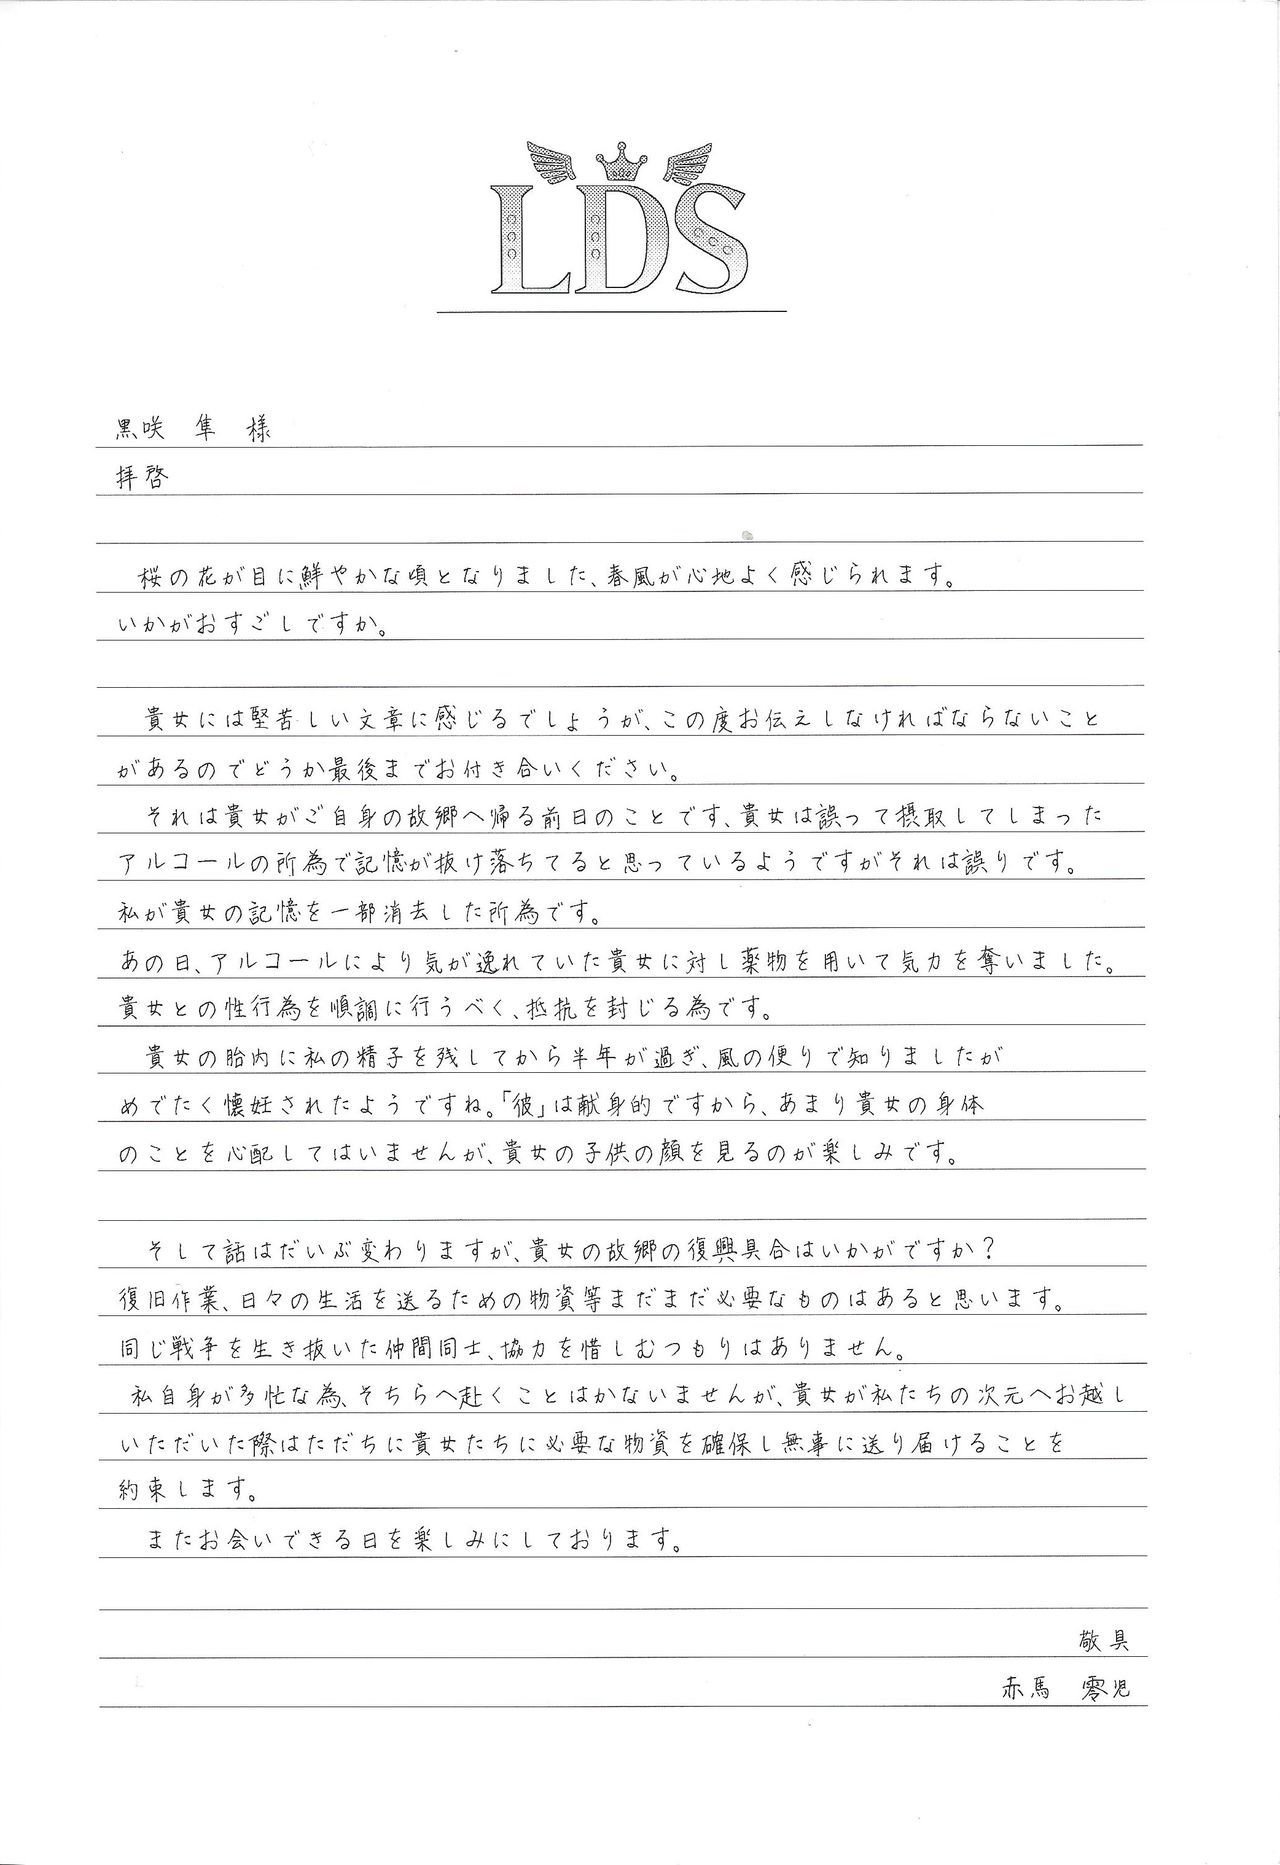 LDS
黒咲 隼 様
拝啓
桜の花が目に鮮やかな頃となりました、春風が心地よく感じられます。
いかがおすごしですか。
貴女には堅苦しい文章に感じるでしょうが、この度お伝えしなければならないこと
があるのでどうか最後までお付き合いください。
それは貴女がご自身の故郷へ帰る前日のことです、貴女は誤って摂取してしまった
アルコールの所為で記憶が抜け落ちてると思っているようですがそれは誤りです。
私が貴女の記憶を一部消去した所為です。
あの日、アルコールにより気が逸れていた貴女に対し薬物を用いて気力を奪いました。
貴女との性行為を順調に行うべく、抵抗を封じる為です。
貴女の胎内に私の精子を残してから半年が過ぎ、風の便りで知りましたが
めでたく懐妊されたようですね。「彼」は献身的ですから、あまり貴女の身体
のことを心配してはいませんが、貴女の子供の顔を見るのが楽しみです。
そして話はだいぶ変わりますが、貴女の故郷の復興具合はいかがですか?
復旧作業、日々の生活を送るための物資等まだまだ必要なものはあると思います。
同じ戦争を生き抜いた仲間同士、協力を惜しむつもりはありません。
私自身が多忙な為、そちらへ赴くことはかないませんが、貴女が私たちの次元へお越し
いただいた際はただちに貴女たちに必要な物資を確保し無事に送り届けることを
約束します。
またお会いできる日を楽しみにしております。
敬具
赤馬 零児